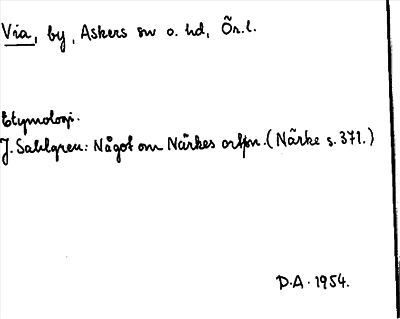 Via, by, Askers sn o. hd, Ör. l.
Etymologi.
J. Sahlgren: Något om Närkes ortsn. (Närke s. 371.)
D.A. 1954.